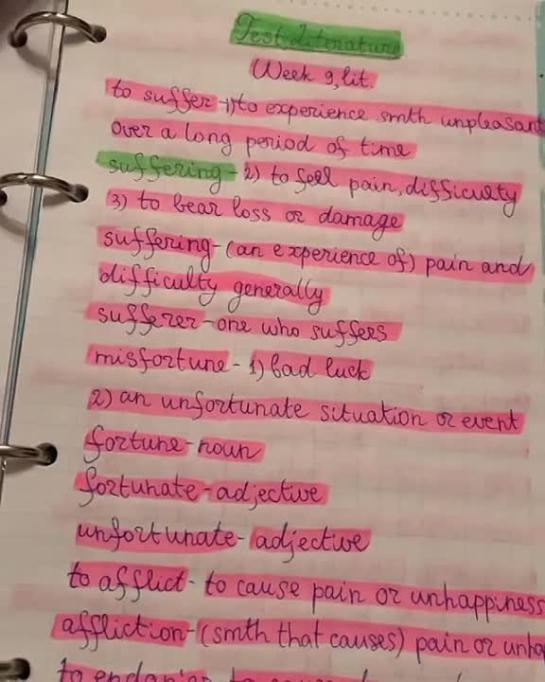 Test Literature
Week 9, lit.
to suffer-1) to experience smth unpleasant
over a long period of time
suffering-2) to feel pain, difficulty
3) to bear loss or damage
suffering-(an experience of) pain and
difficulty generally
sufferer-one who suffers
misfortune-1) bad luck
2) an unfortunate situation or event
fortune-noun
fortunate-adjective
unfortunate-adjective
to afflict-to cause pain or unhappiness
affliction-(smth that causes) pain or
to